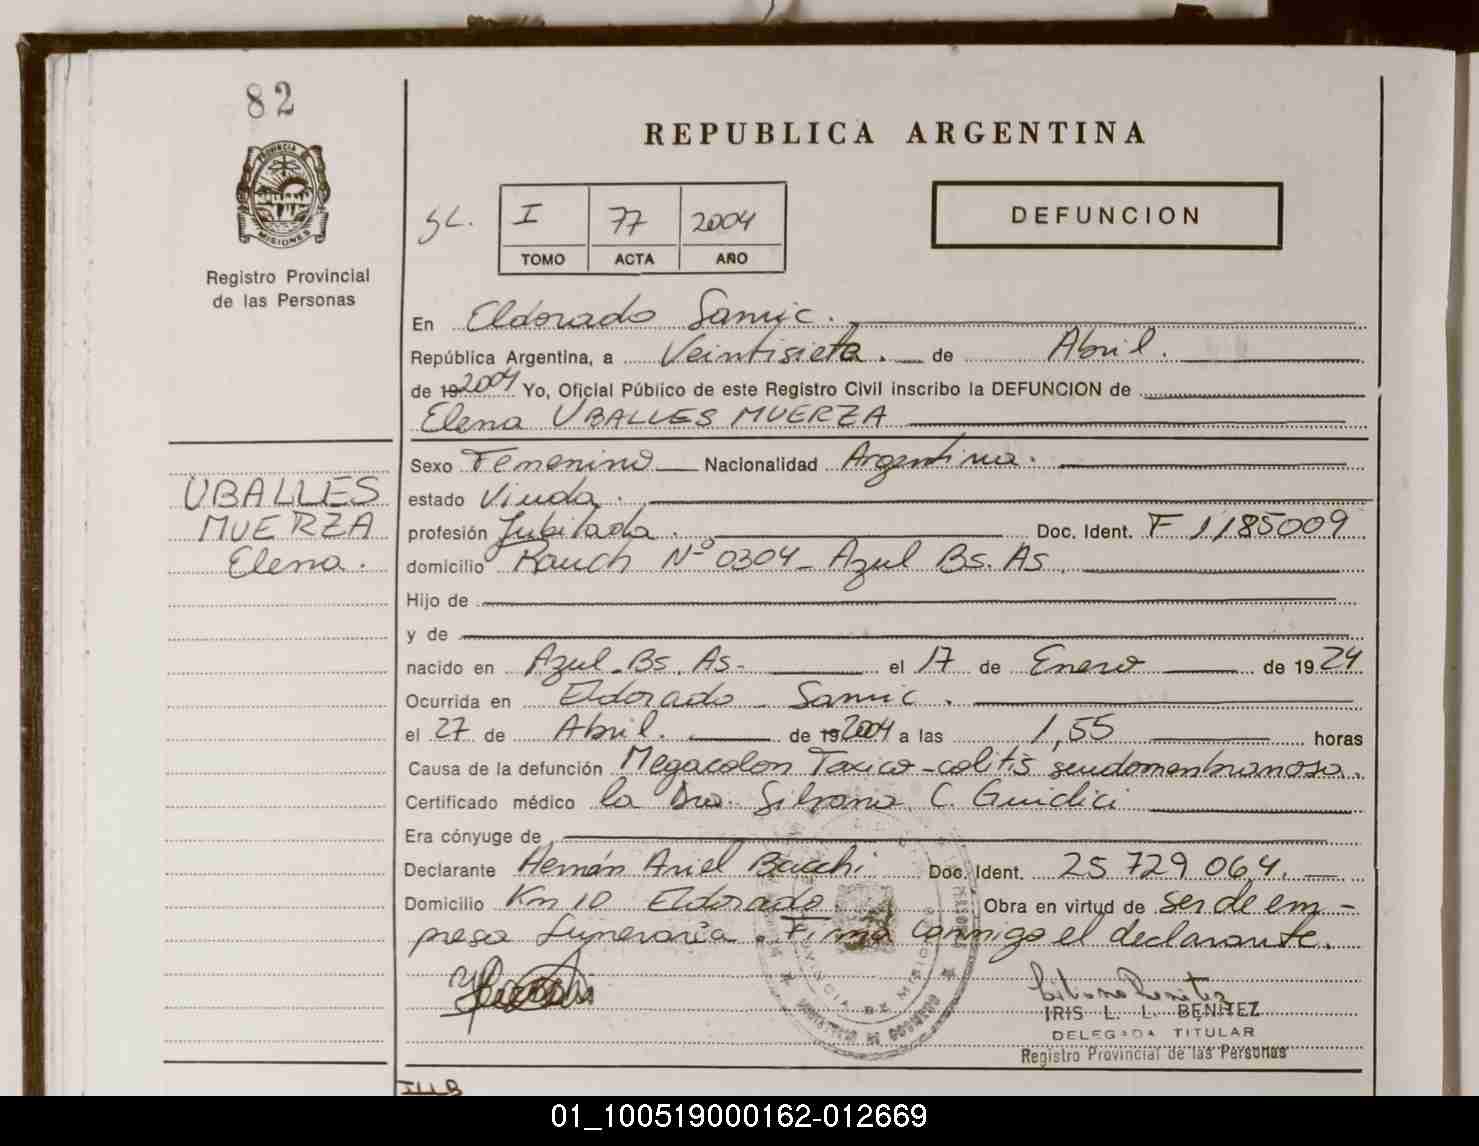 82
PROVINCIA DE
MISIONES
Registro Provincial
de las Personas
REPUBLICA ARGENTINA
SL. I 77 2004
TOMO ACTA AÑO
DEFUNCION
En Eldorado Samic.
República Argentina, a Veintisiete. de Abril.
de 19 2004 Yo, Oficial Público de este Registro Civil inscribo la DEFUNCION de
Elena UBALLES MUERZA
UBALLES
MUERZA
Elena.
Sexo Femenino Nacionalidad Argentina.
estado Viuda.
profesión Jubilada. Doc. Ident. F 1185009
domicilio Rauch Nº 0304 - Azul Bs. As.
Hijo de
y de
nacido en Azul - Bs. As - el 17 de Enero de 1924
Ocurrida en Eldorado Samic.
el 27 de Abril. de 19 2004 a las 1,55 horas
Causa de la defunción Megacolon Toxico - colitis seudomembranosa.
Certificado médico la Dra. Silvana C. Guidici
Era cónyuge de
Declarante Hernán Ariel Bacchi Doc. Ident. 25 729 064.
Domicilio Km 10 Eldorado. Obra en virtud de ser de em-
presa funeraria. Firma conmigo el declarante.
IRIS L. L. BENITEZ
DELEGADA TITULAR
Registro Provincial de las Personas
PROVINCIA DE MISIONES
MINISTERIO DE GOBIERNO
01_100519000162-012669